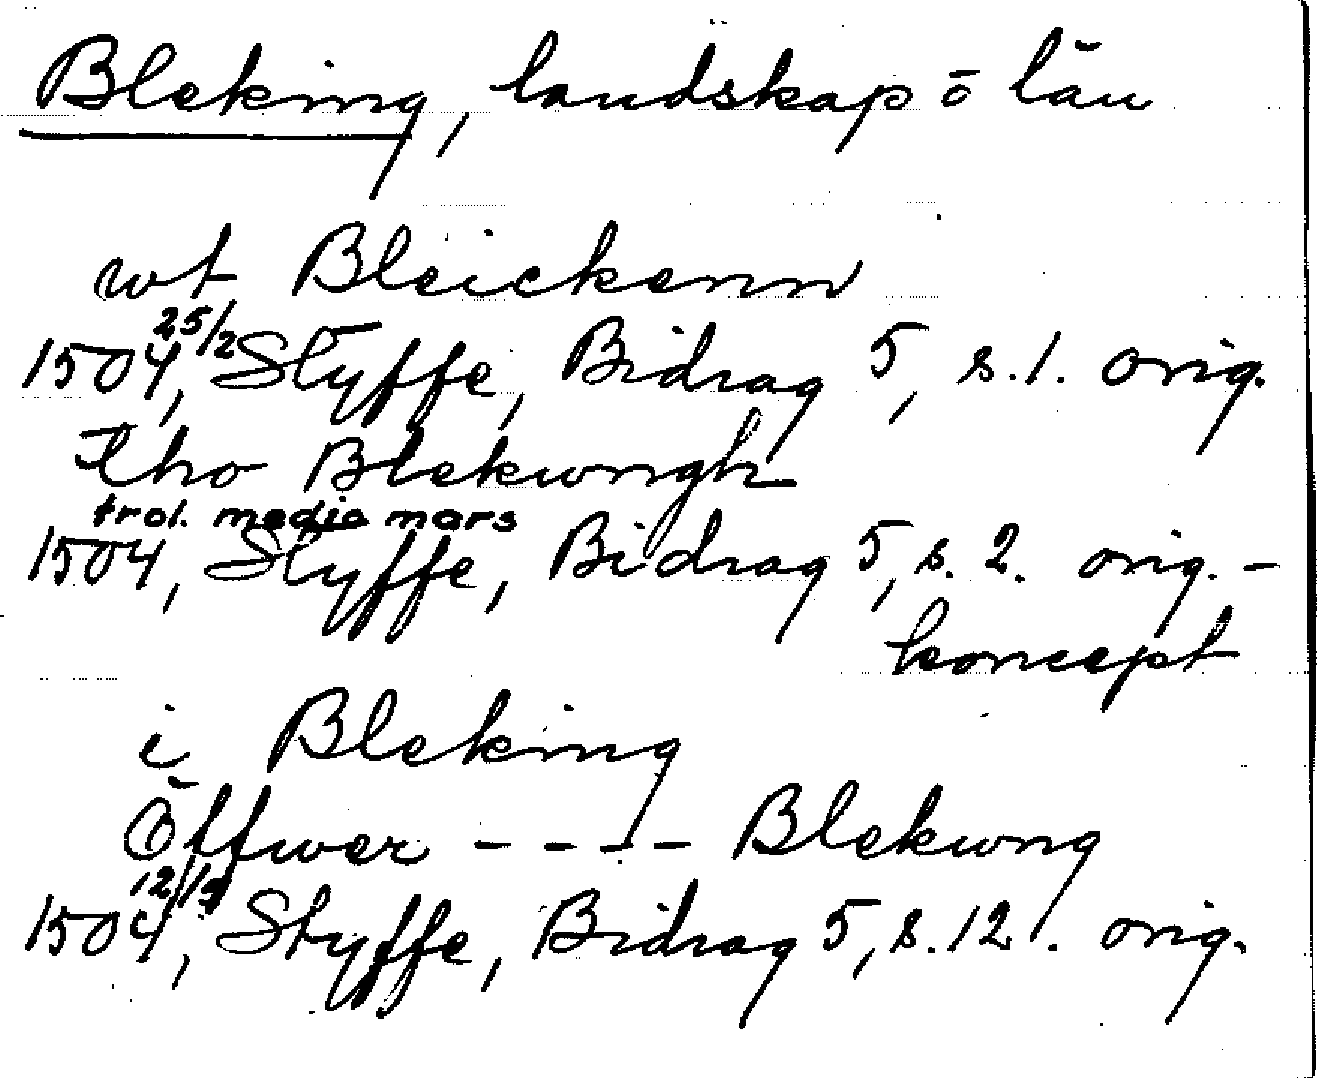 Bleking, landskap o län
wt Bleickenn
1504 25/2, Styffe, Bidrag 5, s. 1. orig.
tho Blekwngh
trol. medio mars
1504, Styffe, Bidrag 5, s. 2. orig. -
koncept
i Bleking
Öffwer - - - - Blekwng
1504 12/9, Styffe, Bidrag 5, s. 12. orig.